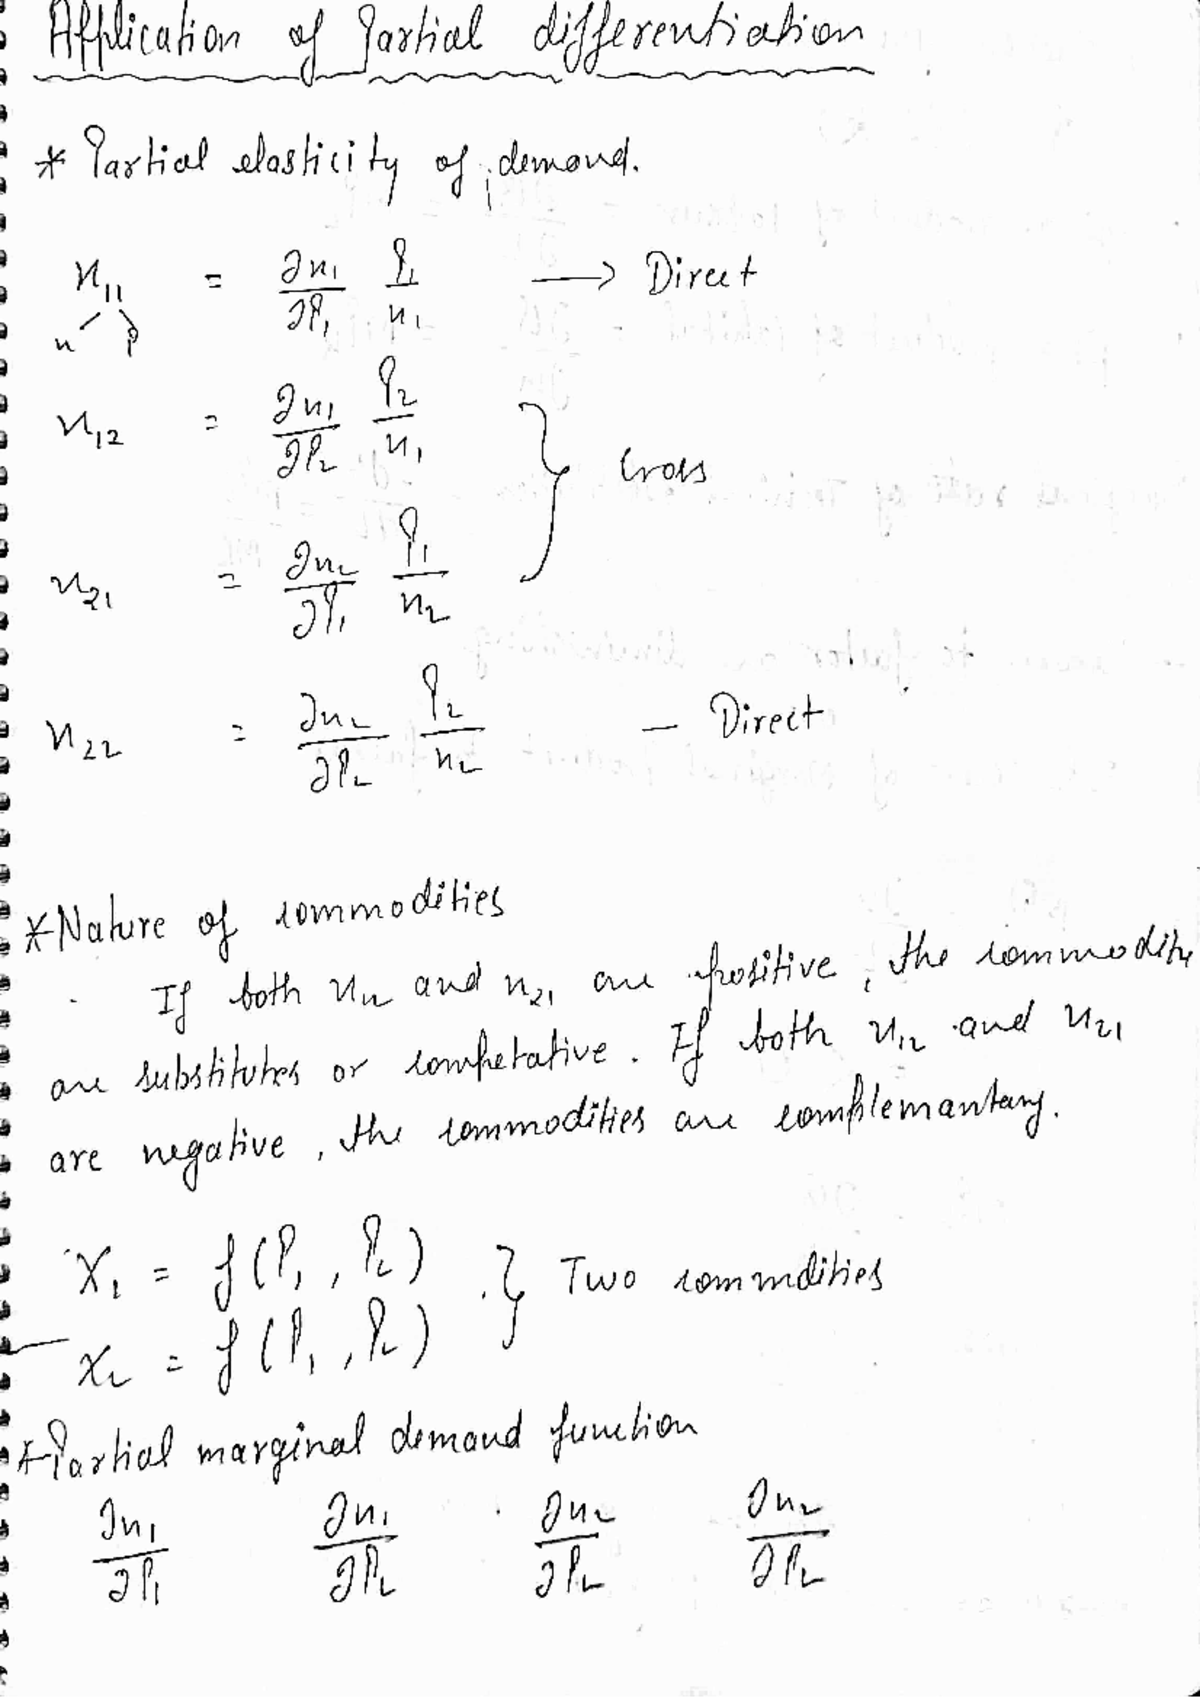 Application of Partial differentiation
* Partial elasticity of demand.
x₁₁ = ∂x₁/∂P₁ P₁/x₁ → Direct
x P
x₁₂ = ∂x₁/∂P₂ P₂/x₁
Cross
x₂₁ = ∂x₂/∂P₁ P₁/x₂
x₂₂ = ∂x₂/∂P₂ P₂/x₂ — Direct
* Nature of commodities
If both x₁₂ and x₂₁ are positive, the commoditie
are substitutes or competative. If both x₁₂ and x₂₁
are negative, the commodities are complemantary.
X₁ = f(P₁, P₂)
} Two commdities
X₂ = f(P₁, P₂)
* Partial marginal demand function
∂x₁/∂P₁ ∂x₁/∂P₂ ∂x₂/∂P₂ ∂x₂/∂P₂